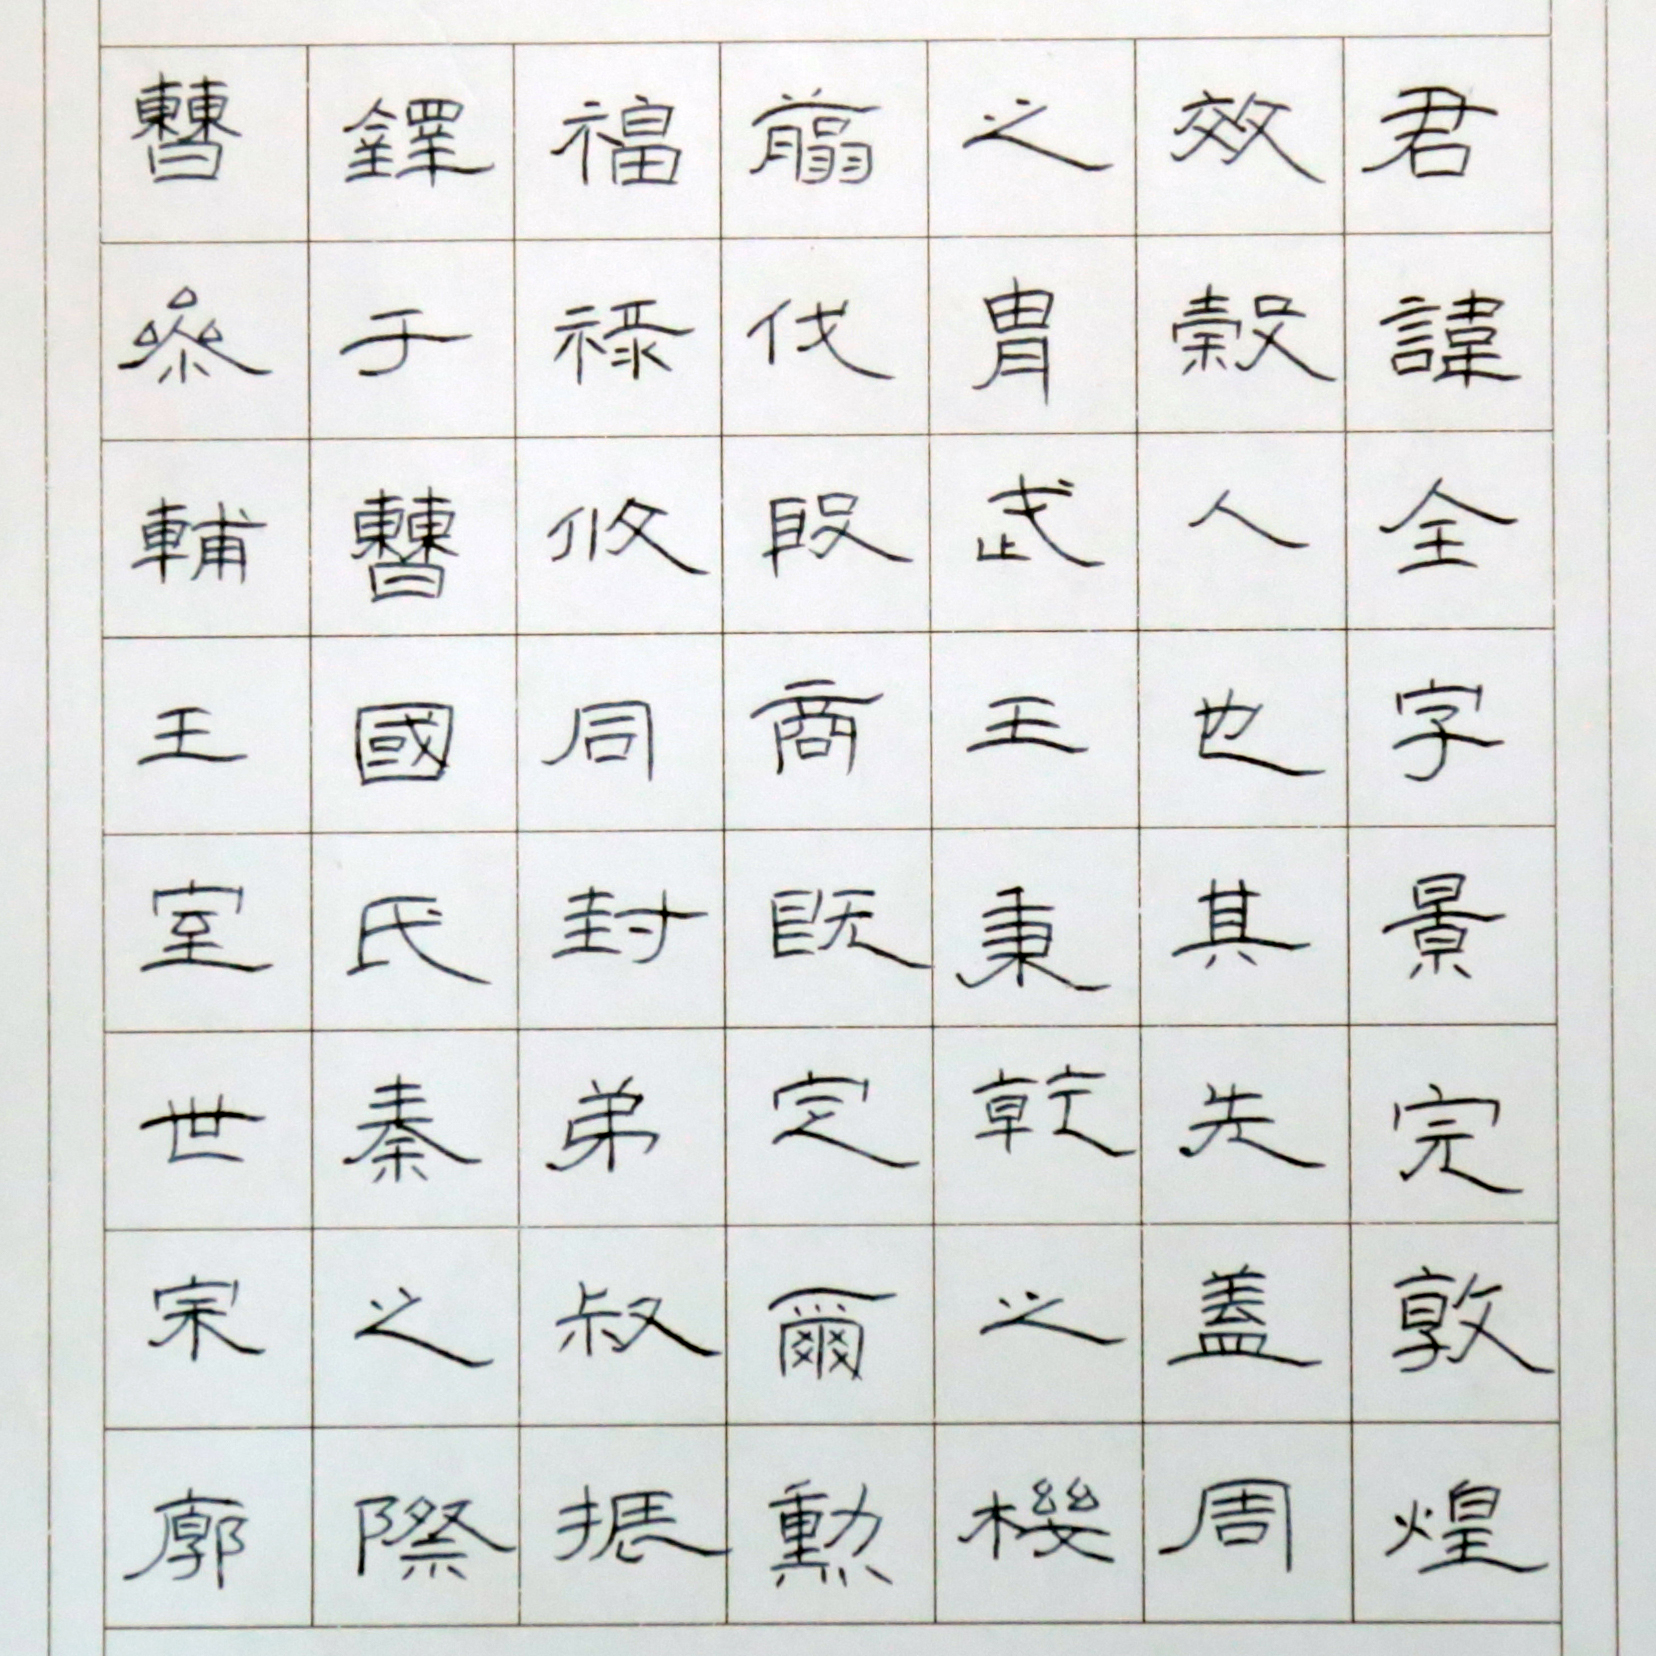 君諱全字景完敦煌
效穀人也其先蓋周
之冑武王秉乾之機
翦伐殷商既定爾勳
福祿攸同封弟叔振
鐸于曹國氏秦之際
曹參輔王室世宗廓